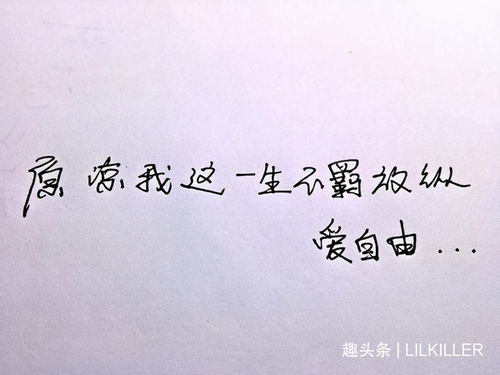 原谅我这一生不羁放纵
爱自由...
趣头条 | LILKILLER